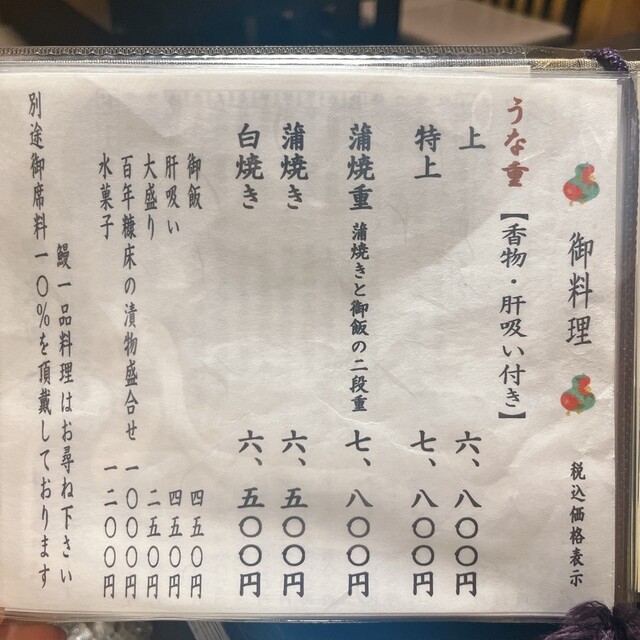 御料理
税込価格表示
うな重【香物・肝吸い付き】
上 六、八〇〇円
特上 七、八〇〇円
蒲焼重 蒲焼きと御飯の二段重 七、八〇〇円
蒲焼き 六、五〇〇円
白焼き 六、五〇〇円
御飯 四五〇円
肝吸い 四五〇円
大盛り 二五〇円
百年糠床の漬物盛合せ 一〇〇〇円
水菓子 一二〇〇円
鰻一品料理はお尋ね下さい
別途御席料一〇%を頂戴しております